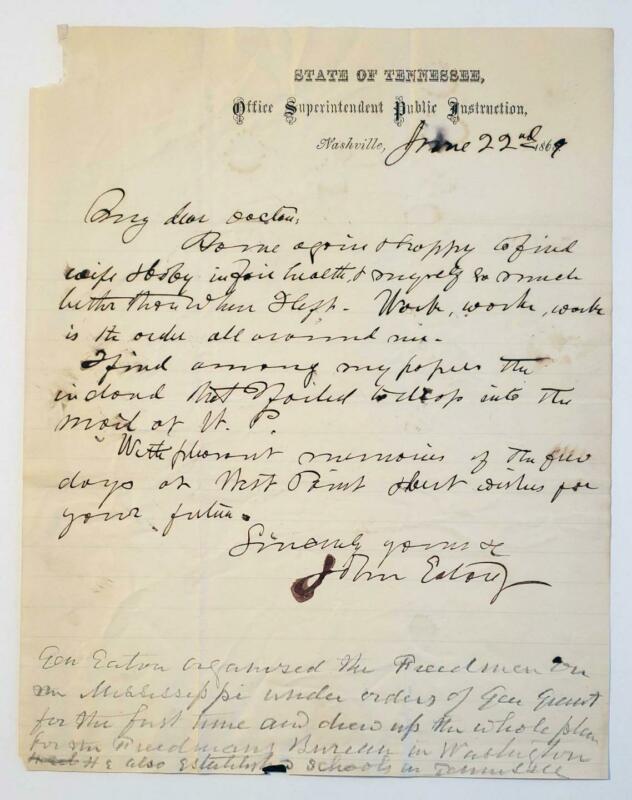 STATE OF TENNESSEE,
Office Superintendent Public Instruction,
Nashville, June 22nd 1869
My dear Doctor,
Home again & happy to find
wife & boy in fair health, & myself so much
better than when I left. Work, work, work
is the order all around me.
I find among my papers the
inclosed that I failed to drop into the
mail at W. P.
With pleasant memories of the few
days at West Point & best wishes for
your future.
Sincerely yours &c
John Eaton
Gen Eaton organized the Freedmen on
the Mississippi under orders of Gen Grant
for the first time and drew up the whole plan
for the Freedmans Bureau in Washington
He also established schools in Tennessee